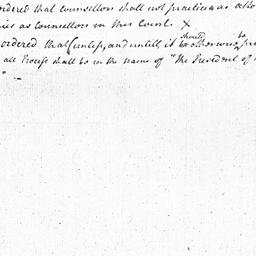 ordered that counsellors shall not practice as atto
nies as counsellors in this Court. X
ordered that (unless, and untill, it should be otherwise pr
all Process shall be in the name of "the President of
" -